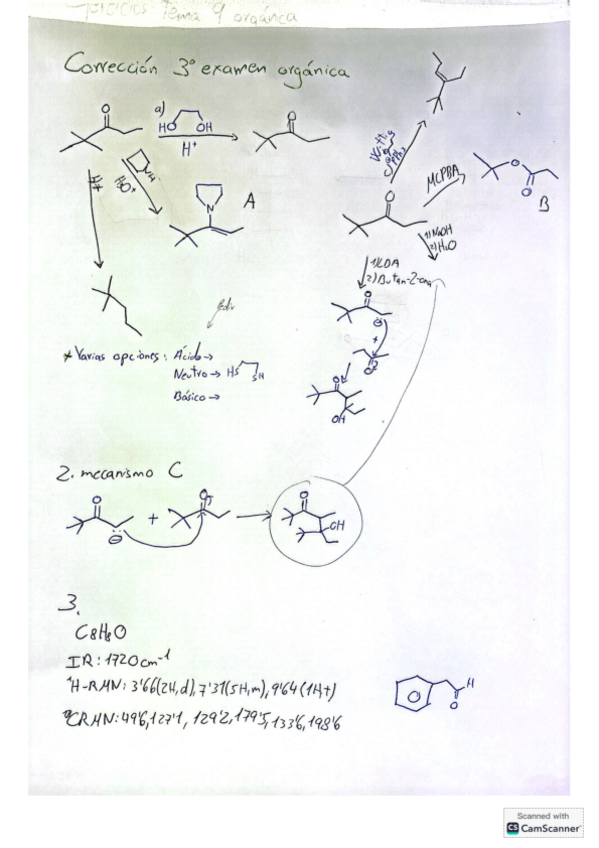 Ejercicios Tema 9 orgánica
Corrección 3º examen orgánica
a)
O
HO OH
H+
O
NH
H3O+
N
A
O
MCPBA
O
O
B
1) NaOH
2) H2O
1) LDA
2) Butan-2-ona
O
O
OH
* Varias opciones: Ácido →
Neutro → HS SH
Básico →
2. mecanismo C
O
+
O
→
O
OH
3.
C8H8O
IR: 1720cm-1
1H-RMN: 3'66(2H,d), 7'31(5H,m), 9'64(1H,t)
CRMN: 49'6, 127'1, 129'2, 179'5, 133'6, 198'6
H
O
Scanned with
CS CamScanner